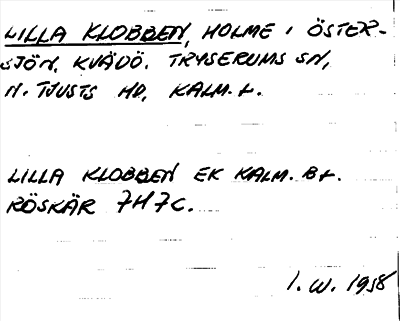 LILLA KLOBBEN, HOLME I ÖSTER-
SJÖN, KVÄDÖ. TRYSERUMS SN,
N. TJUSTS HD, KALM. L.
LILLA KLOBBEN EK KALM. BL.
RÖSKÄR 7H7C.
I. W. 1958